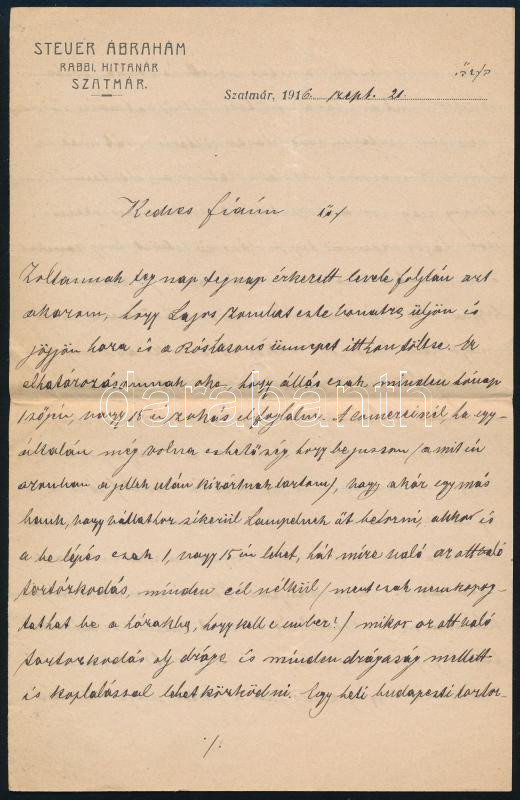 STEUER ÁBRAHÁM
RABBI, HITTANÁR
SZATMÁR.
Szatmár, 1916 szept. 21.
Kedves fiaim
Zoltannak tegnap tegnap érkezett levele folytán azt
akarom, hogy Lajos szombat este vonatra üljön és
jöjjön haza és a Róshasonó ünnepet itthon töltse. Ez
elhatározásomnak oka, hogy állás csak minden hónap
1 sőjén, vagy 15 én szokás elfoglalni. A Comercinál, ha egy-
általán még volna eshetőség hogy bejusson (a mit én
azonban a jellek után kizártnak tartom), vagy akár egy más
bank, vagy vállathoz sikerül Lampelnek őt betenni, akkor is
a belépés csak 1, vagy 15 én lehet, hát mire való az ott való
tartózkodás, minden cél nélkül (mert csak nem kopog-
tathat be a házakba, hogy kell e ember!) mikor az ott való
tartozkodás oly drága és minden drágaság mellett
is koplalással lehet közködni. Egy heti budapesti tartoz-
./.
darabanth